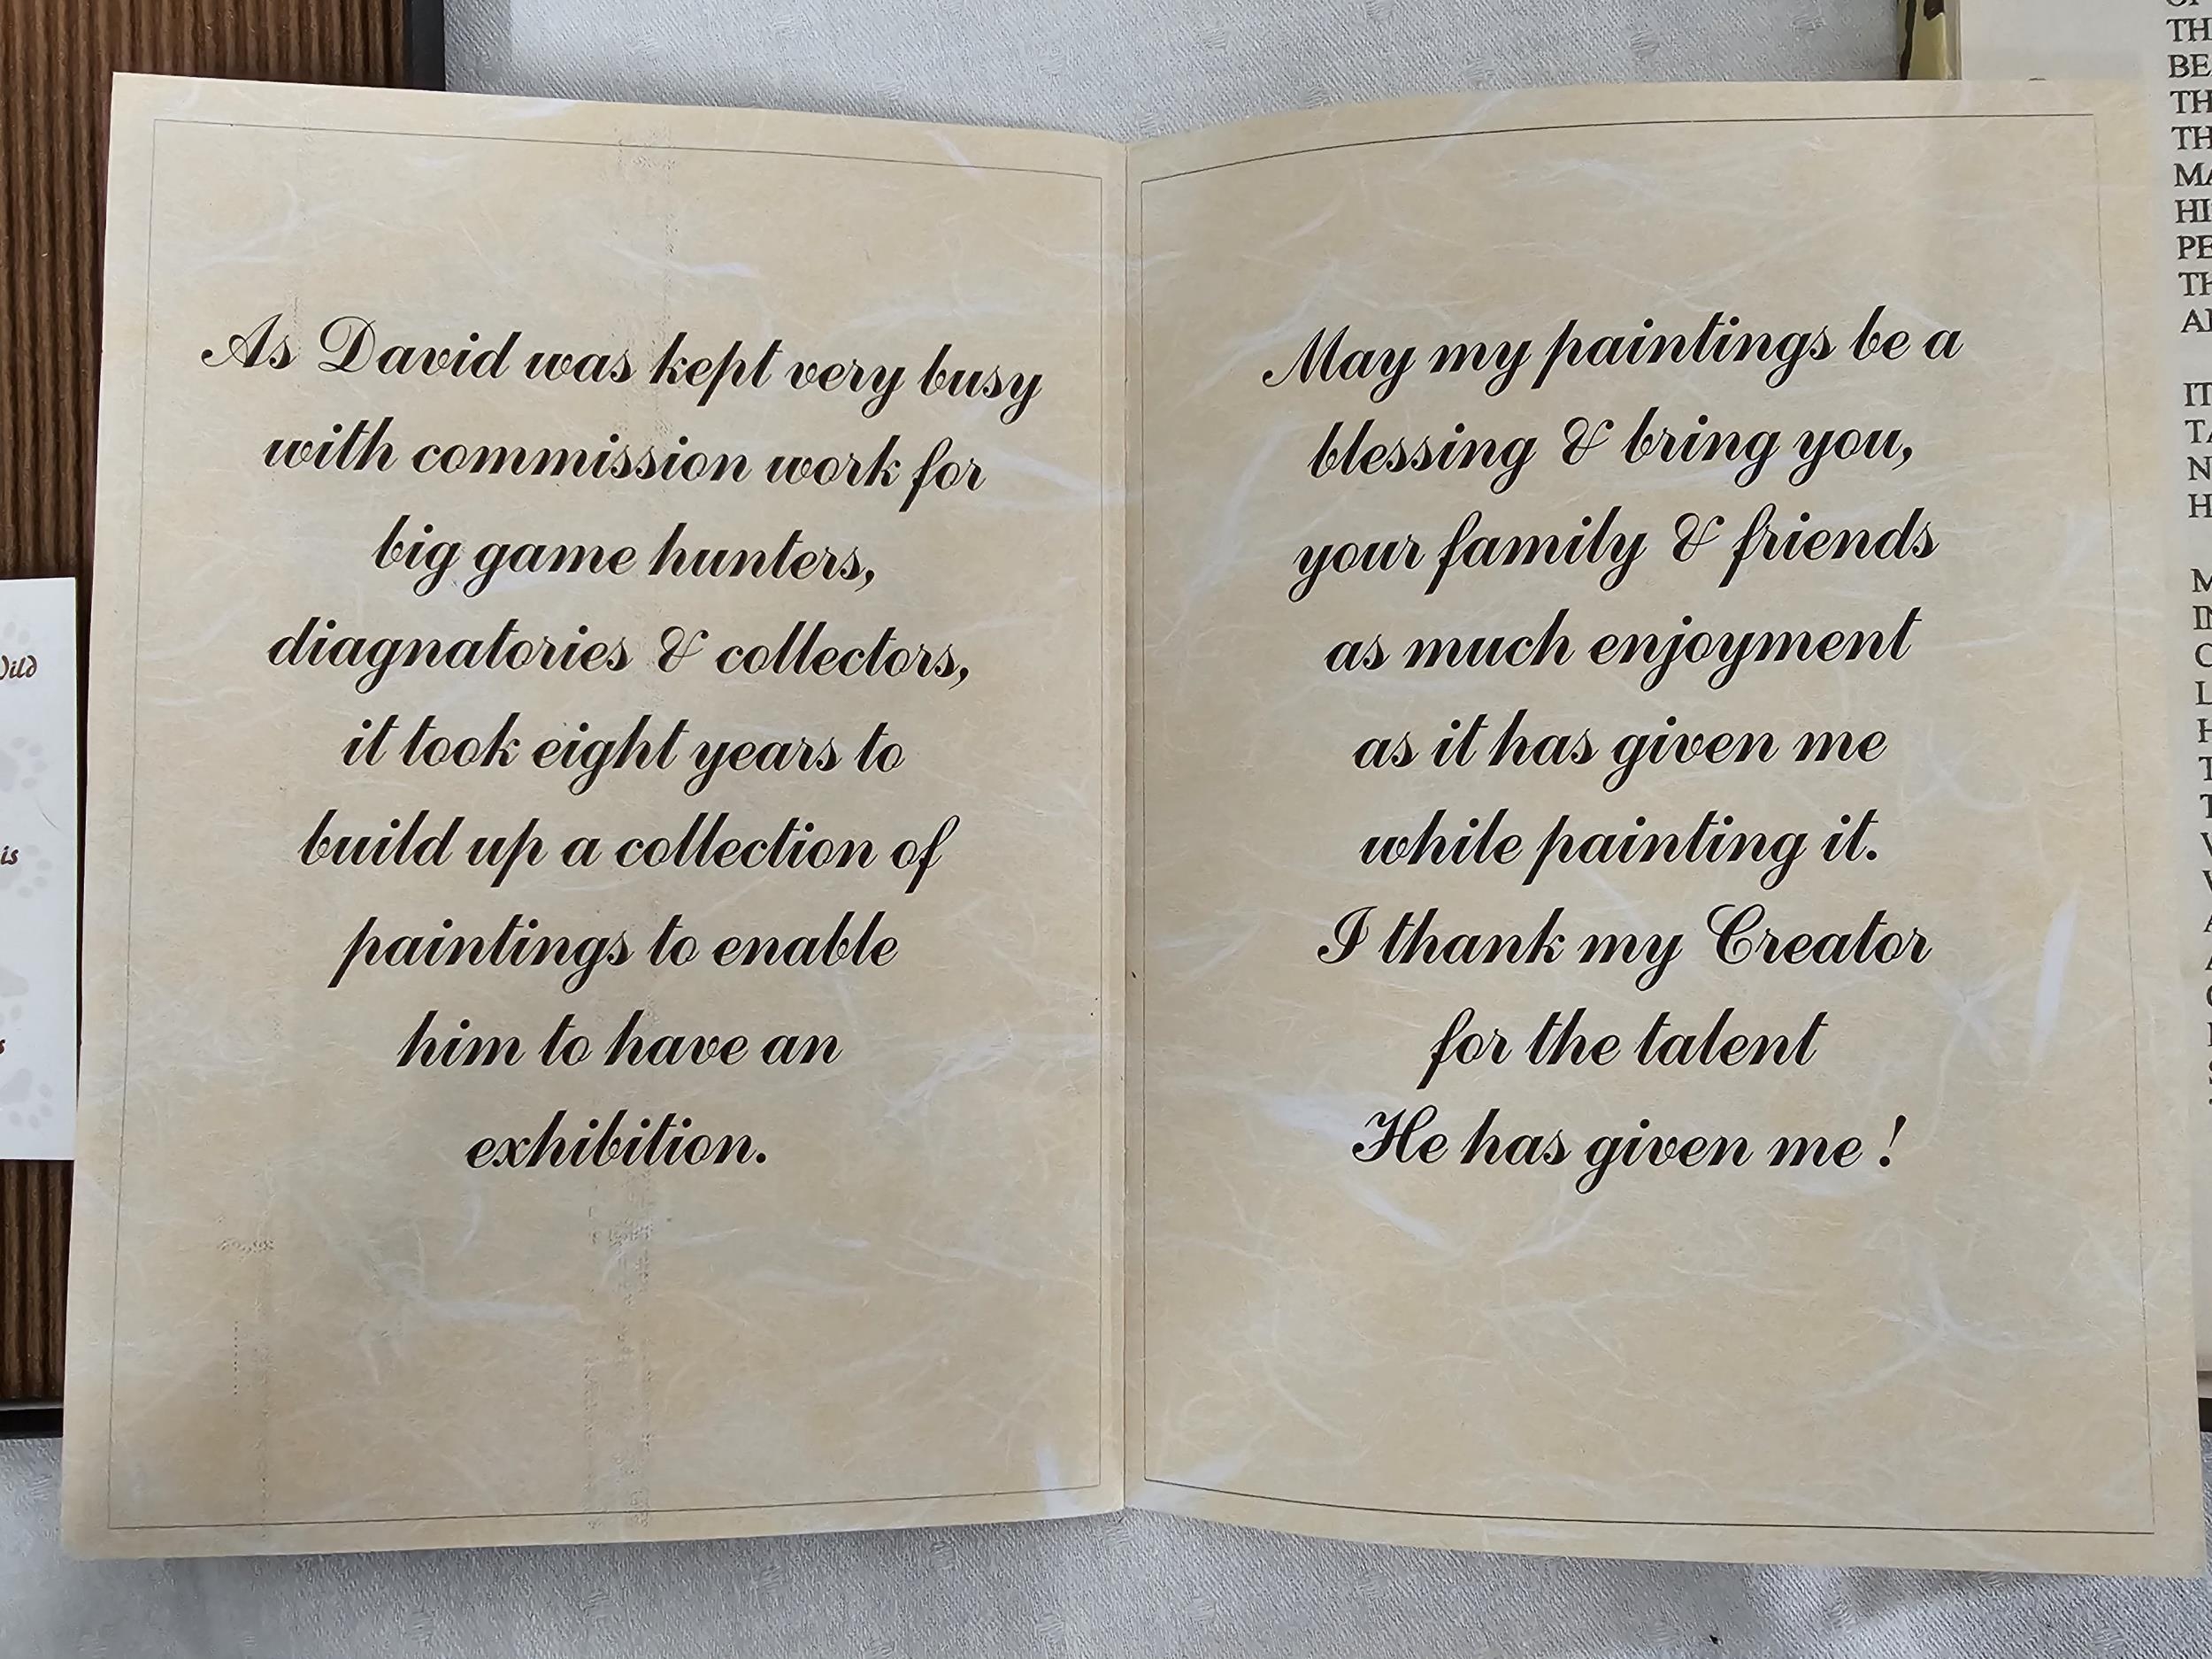 As David was kept very busy
with commission work for
big game hunters,
diagnatories & collectors,
it took eight years to
build up a collection of
paintings to enable
him to have an
exhibition.
May my paintings be a
blessing & bring you,
your family & friends
as much enjoyment
as it has given me
while painting it.
I thank my Creator
for the talent
He has given me !
is